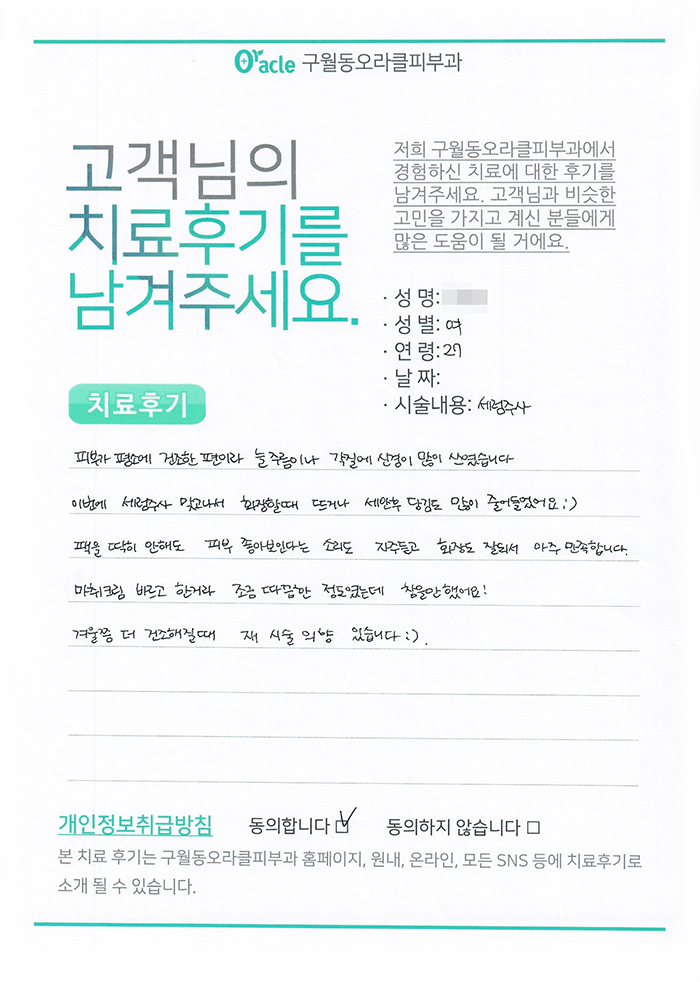 Oracle 구월동오라클피부과
고객님의
치료후기를
남겨주세요.
저희 구월동오라클피부과에서
경험하신 치료에 대한 후기를
남겨주세요. 고객님과 비슷한
고민을 가지고 계신 분들에게
많은 도움이 될 거에요.
· 성 명:
· 성 별: 여
· 연 령: 27
· 날 짜:
· 시술내용: 세럼주사
치료후기
피부가 평소에 건조한 편이라 늘 주름이나 각질에 신경이 많이 쓰였습니다
이번에 세럼주사 맞고나서 화장할때 뜨거나 세안후 당김도 많이 줄어들었어요:)
팩을 딱히 안해도 피부 좋아보인다는 소리도 자주듣고 화장도 잘되서 아주 만족합니다.
마취크림 바르고 한거라 조금 따끔한 정도였는데 참을만했어요!
겨울쯤 더 건조해질때 재 시술 의향 있습니다:).
개인정보취급방침 동의합니다 ☑ 동의하지 않습니다 □
본 치료 후기는 구월동오라클피부과 홈페이지, 원내, 온라인, 모든 SNS 등에 치료후기로
소개 될 수 있습니다.